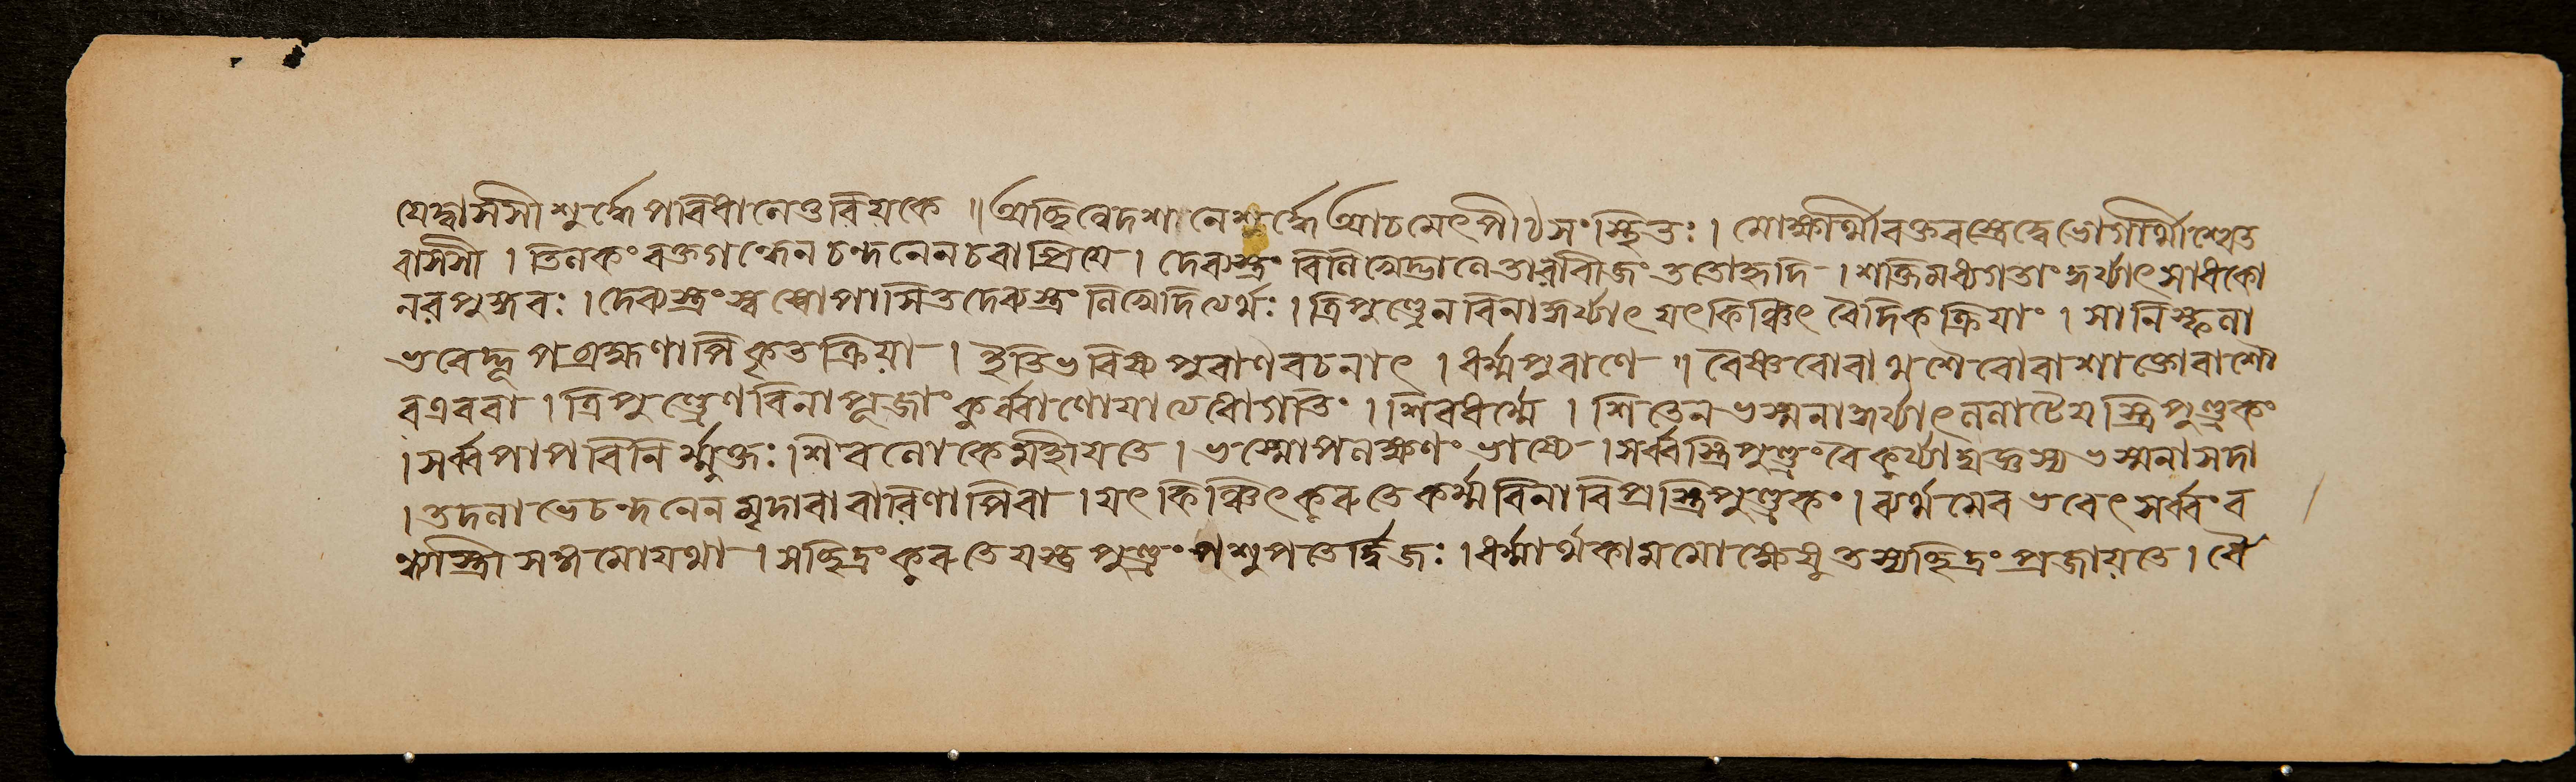 যেদ্বাসসী শুদ্ধে পরিধানেত্তরিয়কে ॥ অচ্ছিন্নেদশানে শুদ্ধে আচমেৎপীঠসংস্থিতঃ । মোক্ষার্থী রক্তবস্ত্রেদ্বে ভোগার্থী শ্বেত
বাসসী । তিলকং রক্তগন্ধেন চন্দনেন চবাপ্রিয়ে । দেব্যস্ত্রং বিলিখেদ্ভালে তারবীজং ততোহৃদি । শক্তিমধ্যগতাং কুর্য্যাৎ সাধকো
নরপুঙ্গবঃ । দেব্যস্ত্রং স্বস্বোপাসিতদেব্যস্ত্রং লিখেদিত্যর্থঃ । ত্রিপুণ্ড্রেন বিনাকুর্য্যাৎ যৎকিঞ্চিৎ বৈদিকক্রিয়াং । সা নিস্ফলা
ভবেদ্ভূপ ব্রহ্মণাপি কৃতক্রিয়া । ইতি ভবিষ্যপুরাণবচনাৎ । ধর্ম্মপুরাণে ॥ বৈষ্ণবোবাথশৈবোবা শাক্তোবা শৌ
রএববা । ত্রিপুণ্ড্রেণ বিনাপূজাং কুর্ব্বাণোযাত্যধোগতিং । শিবধর্ম্মে । শিতেন ভস্মনাকুর্য্যাৎ ললাটেয স্ত্রিপুণ্ড্রকং
। সর্ব্বপাপবিনির্ম্মুক্তঃ । শিবলোকেমহীয়তে । ভস্মোপলক্ষণং ভাষ্যে । সর্ব্বস্ত্রিপুণ্ড্রংবৈকুর্য্যাদ্ ভস্মনাসদা
। তদলাভেচন্দনেন মৃদাবা বারিণাপিবা । যৎকিঞ্চিৎকুরুতে কর্ম্ম বিনা বিপ্রস্ত্রিপুণ্ড্রকং । ব্যর্থমেব ভবেৎ সর্ব্বং ব
ন্ধ্যাস্ত্রীসঙ্গমোযথা । সচ্ছিদ্রং কুরুতে যস্তু পুণ্ড্রং পশুপতের্দ্বিজঃ । ধর্ম্মার্থকামমোক্ষেষু তস্যচ্ছিদ্রং প্রজায়তে । বৈ